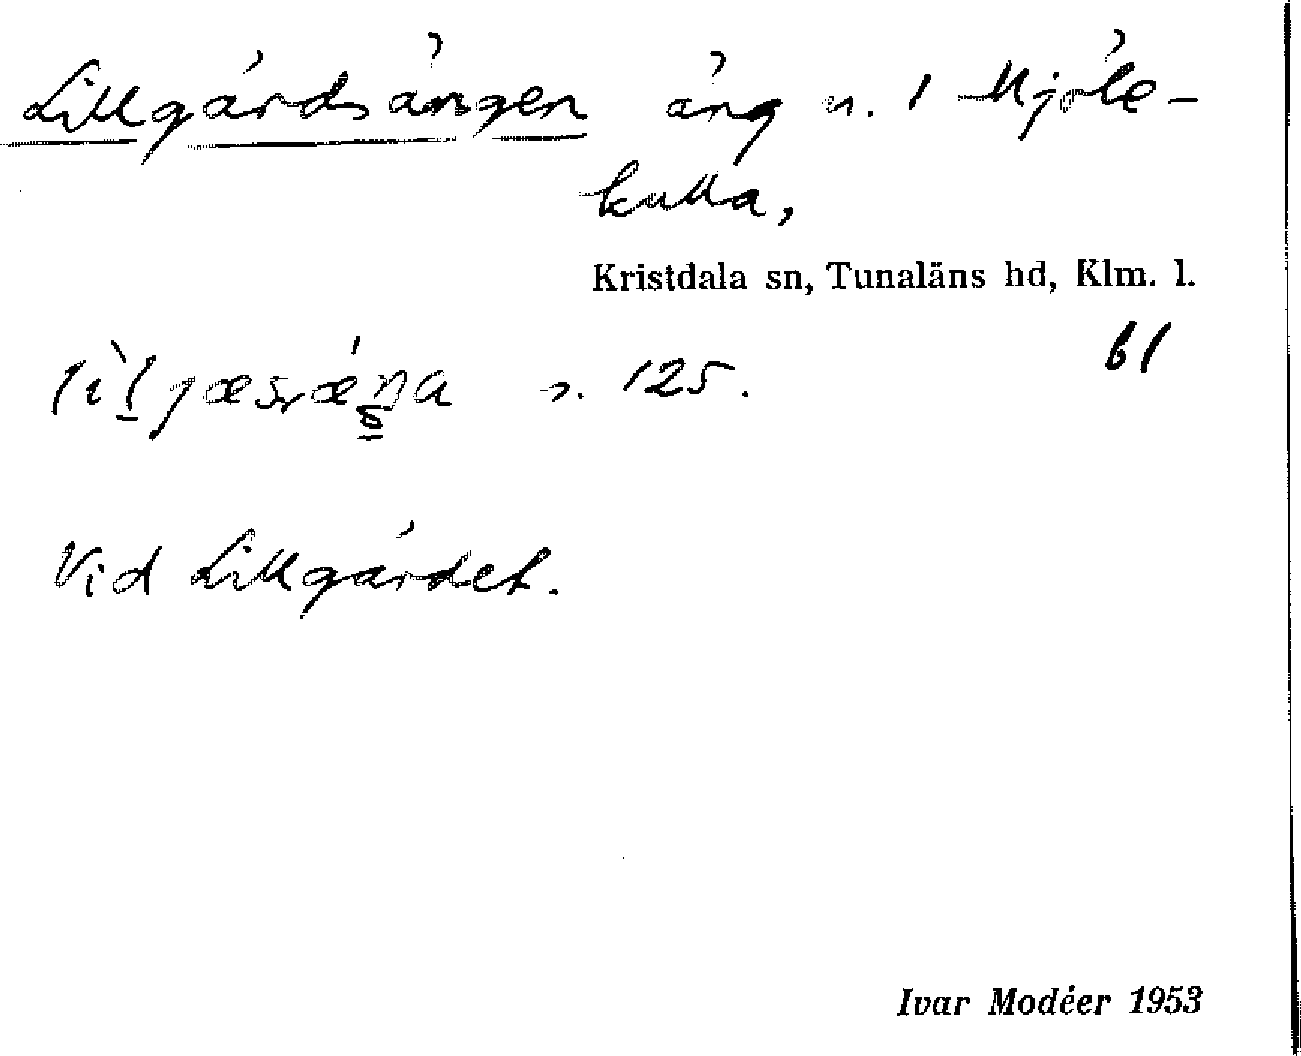 Lillgärdsängen äng n. 1 Mjöle-
kulla,
Kristdala sn, Tunaläns hd, Klm. l.
61
s. 125.
Vid Lillgärdet.
Ivar Modéer 1953